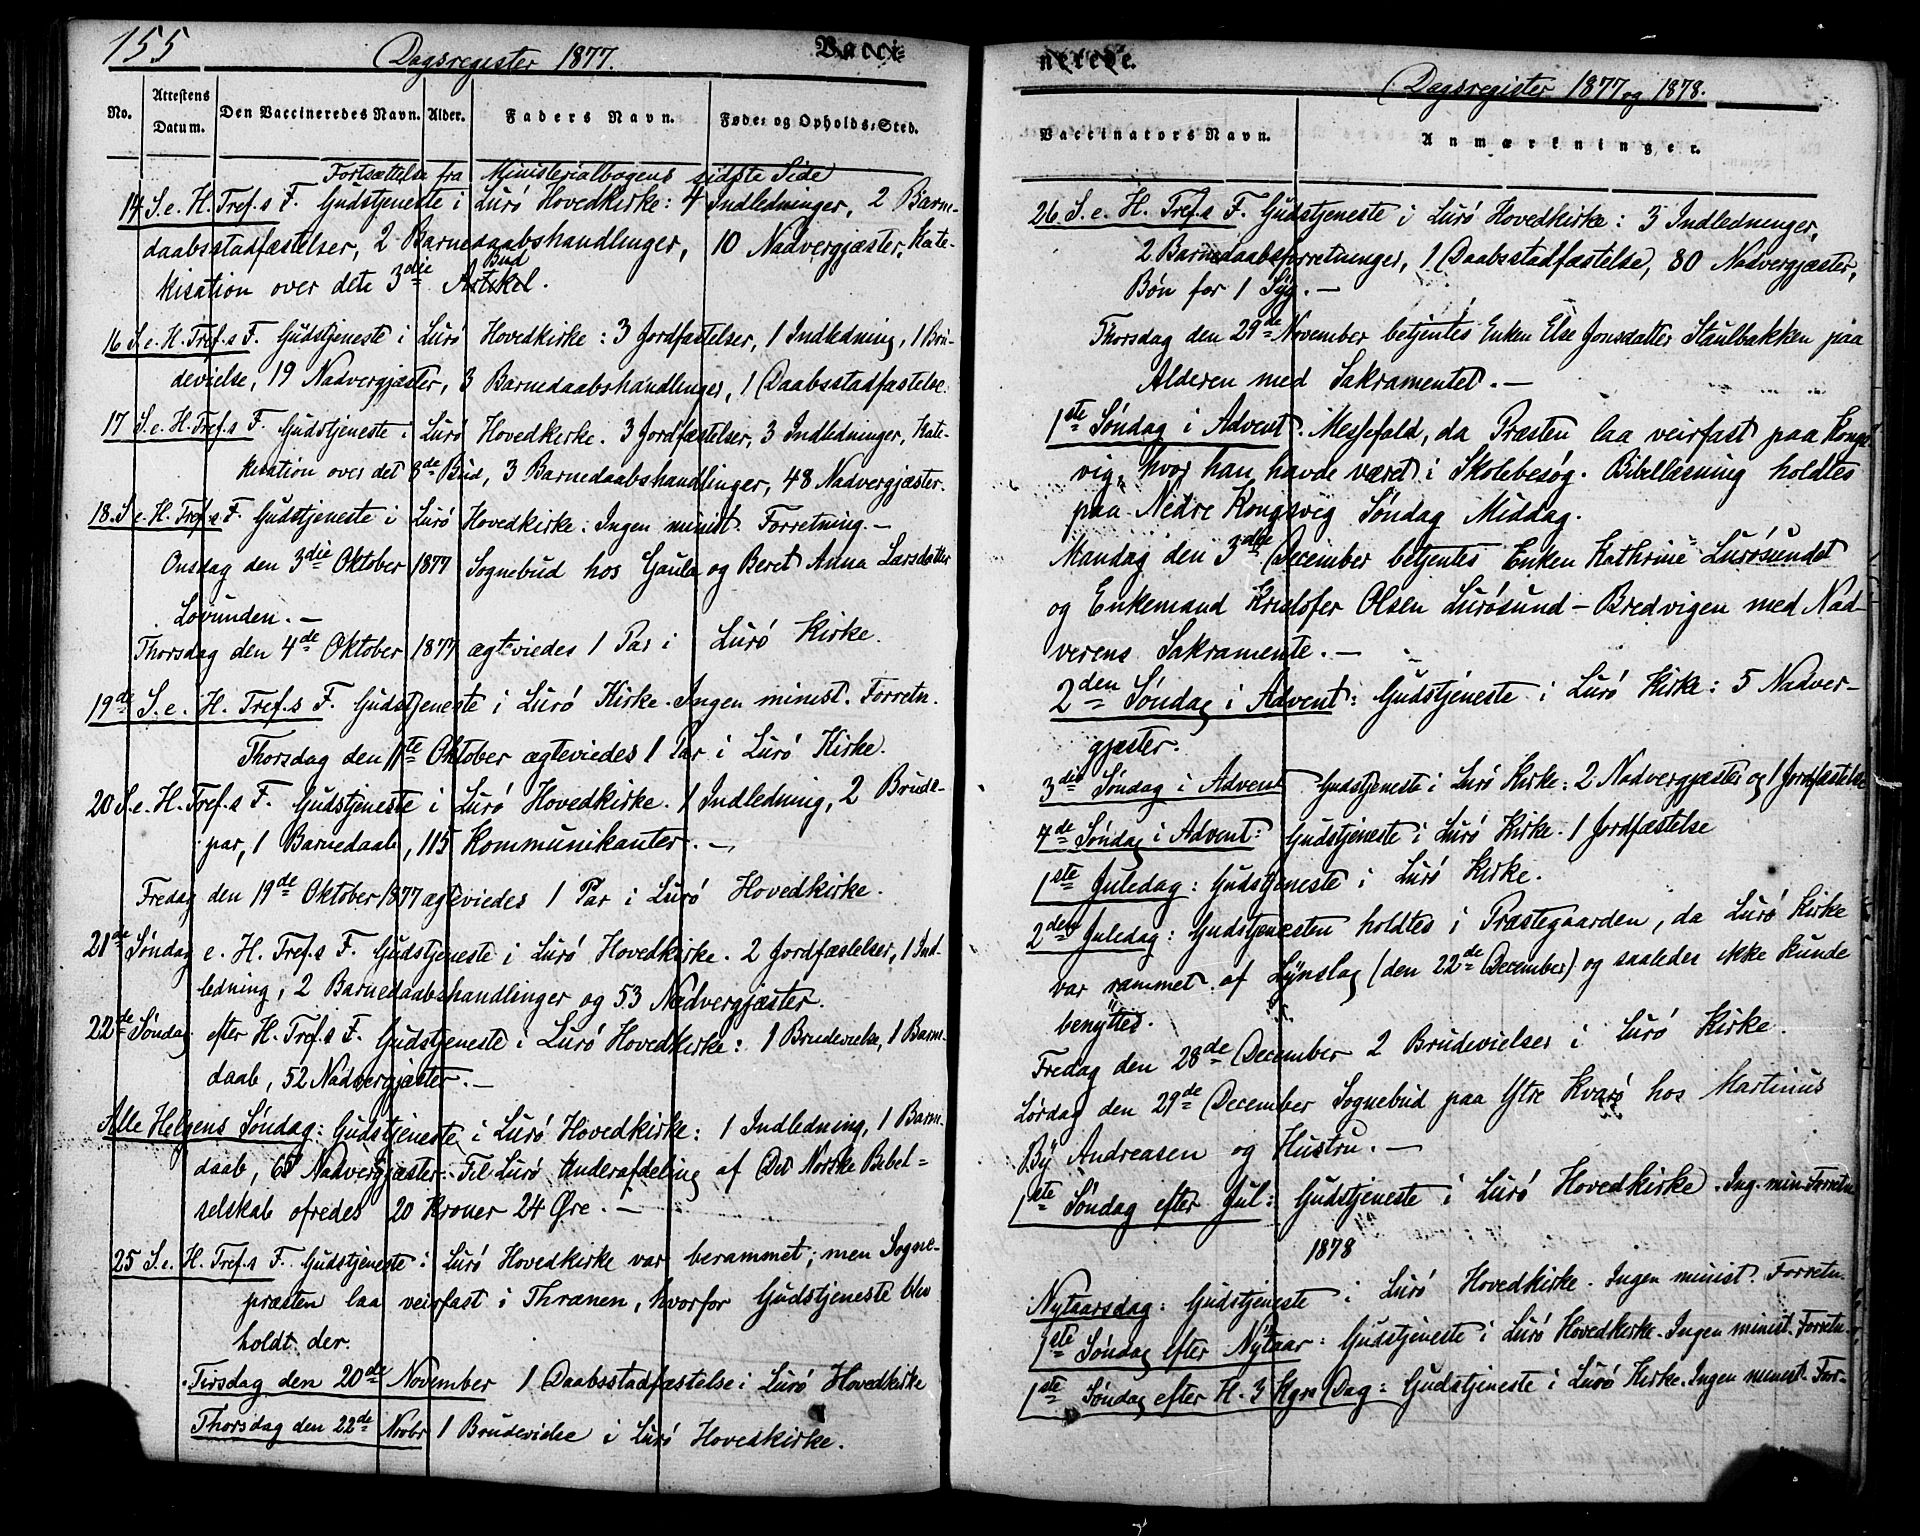 155
Dagsregister 1877.
Vacci-
No.
Attestens Datum.
Den Vaccineredes Navn.
Alder.
Faders Navn.
Føde- og Opholds-Sted.
Fortsættelse fra Ministerialbogens sidste Side
14 S. e. H. Tref.s F. Gudstjeneste i Lurö Hovedkirke: 4 Indledninger, 2 Barne-
daabsstadfæstelser, 2 Barnedaabshandlinger, 10 Nadvergjæster. Kate-
kisation over dete 3die Artikel. Bud
16 S. e. H. Tref.s F. Gudstjeneste i Lurö Hovedkirke: 3 Jordfæstelser, 1 Indledning, 1 Bru-
devielse, 19 Nadvergjæster, 3 Barnedaabshandlinger, 1 Daabsstadfæstelse.
17 S. e. H. Tref.s F. Gudstjeneste i Lurö Hovedkirke. 3 Jordfæstelser, 3 Indledninger, Kate-
kisation over det 8de Bud, 3 Barnedaabshandlinger, 48 Nadvergjæster.
18. S. e. H. Tref.s F. Gudstjeneste i Lurö Hovedkirke: Ingen minist. Forretning. –
Onsdag den 3die Oktober 1877 Sognebud hos Gaula og Beret Anna Larsdatter
Lovunden. –
Thorsdag den 4de Oktober 1877 ægteviedes 1 Par i Lurö Kirke.
19de S. e. H. Tref.s F. Gudstjeneste i Lurö Kirke. Ingen minist. Forretn.
Thorsdag den 11te Oktober ægteviedes 1 Par i Lurö Kirke.
20 S. e. H. Tref.s F. Gudstjeneste i Lurö Hovedkirke. 1 Indledning, 2 Brude-
par, 1 Barnedaab, 115 Kommunikanter. –
Fredag den 19de Oktober 1877 ægteviedes 1 Par i Lurö Hovedkirke.
21de Söndag e. H. Tref.s F. Gudstjeneste i Lurö Hovedkirke. 2 Jordfæstelser, 1 Ind-
ledning, 2 Barnedaabshandlinger og 53 Nadvergjæster.
22de Söndag efter H. Tref.s F. Gudstjeneste i Lurö Hovedkirke: 1 Brudevielse, 1 Barne-
daab, 52 Nadvergjæster. –
Alle Helgens Söndag: Gudstjeneste i Lurö Hovedkirke: 1 Indledning, 1 Barne-
daab, Nadvergjæster. Til Lurö Underafdeling af Det Norske Bibel=
selskab ofredes 20 Kroner 24 Øre. –
25 S. e. H. Tref.s F. Gudstjeneste i Lurö Hovedkirke var berammet; men Sogne-
præsten laa veirfast i Thrænen, hvorfor Gudstjeneste blev
holdt der.
Tirsdag den 20de November 1 Daabsstadfæstelse i Lurö Hovedkirke
Thorsdag den 22de Novbr 1 Brudevielse i Lurö Hovedkirke.
nerede.
Dagsregister 1877 og 1878.
Vaccinators Navn.
Anmærkninger.
26. S. e. H. Tref.s F. Gudstjeneste i Lurö Hovedkirke: 3 Indledninger,
2 Barnedaabsforretninger, 1 Daabsstadfæstelse, 80 Nadvergjæster,
Bön for 1 Syg. –
Thorsdag den 29de November betjentes Enken Else Jonsdatter Staulbakken paa
Alderen med Sakramentet. –
1ste Söndag i Advent. Messefald, da Præsten laa veirfast paa Kongs-
vig, hvor han havde været i Skolebesög. Bibellæsning holdtes
paa Nedre Kongsvig Söndag Middag.
Mandag den 3die December betjentes Enken Kathrine Lurösundet
og Enkemand Kristofer Olsen Lurösund – Bredvigen med Nad-
verens Sakramente. –
2den Söndag i Advent: Gudstjeneste i Lurö Kirke: 5 Nadver-
gjæster.
3die Söndag i Advent Gudstjeneste i Lurö Kirke: 2 Nadvergjæster og 1 Jordfæstelse
4de Söndag i Advent: Gudstjeneste i Lurö Kirke. 1 Jordfæstelse
1ste Juledag: Gudstjeneste i Lurö Kirke.
2den Juledag: Gudstjenesten holdtes i Præstegaarden, da Lurö Kirke
var rammet af Lynslag (den 22de December) og saaledes ikke kunde
benyttes.
Fredag den 28de December 2 Brudevielser i Lurö Kirke.
Lördag den 29de December Sognebud paa Ytre Kvarö hos Martinus
By Andreasen og Hustru. –
1ste Söndag efter Jul: Gudstjeneste i Lurö Hovedkirke. Ing. min. Forretn
1878
Nytaarsdag: Gudstjeneste i Lurö Hovedkirke. Ingen minist. Forretn.
1ste Söndag efter Nytaar: Gudstjeneste i Lurö Hovedkirke. Ingen minist. Forretn.
1ste Söndag efter H. 3 Kgrs Dag: Gudstjeneste i Lurö Kirke. Ingen minist. Forr-